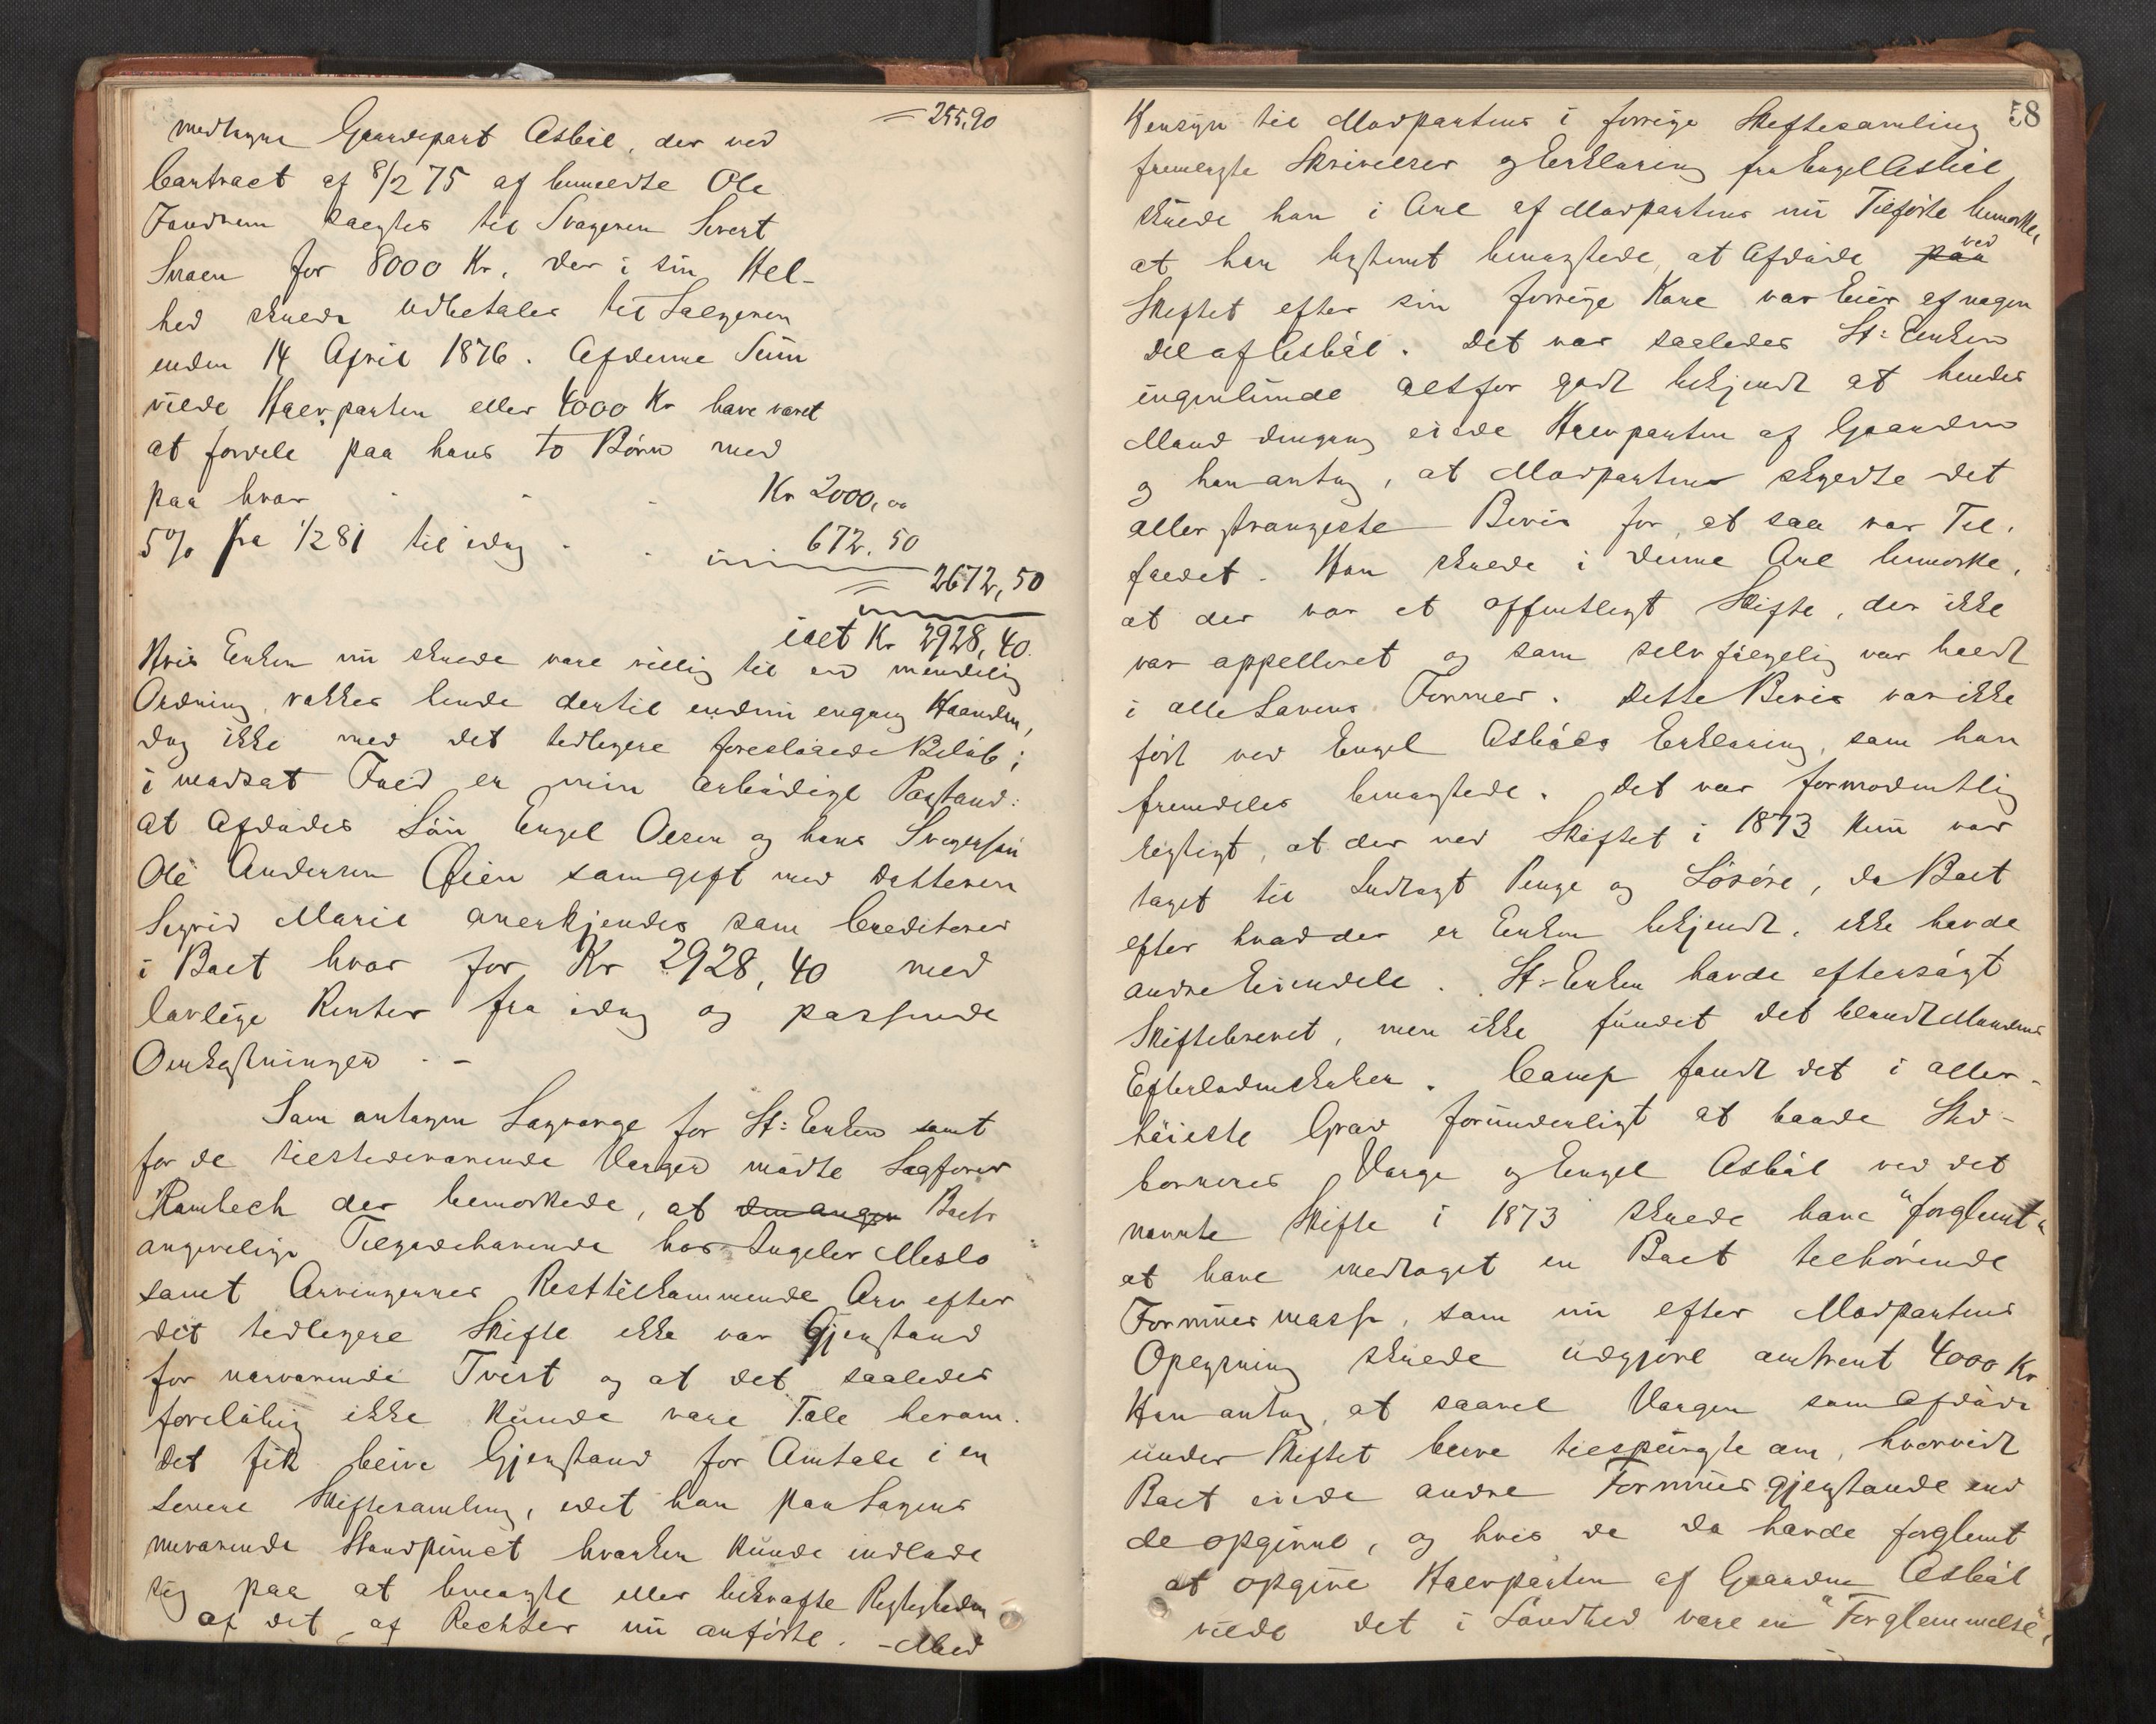 = 255,90
medtagne Gaardepart Asbøl, der ved
Contract af 8/2 75 af bemeldte Ole
Sandnem sælgtes til Svageren Sivert
Snoen for 8000 Kr, der i sin Hel-
hed skulde udbetales til Sælgeren
inden 14 April 1876. Af denne Sum
vilde Halvparten eller 4000 Kr have været
at fordele paa hans to Børn med
paa hver - - - Kr 2000,00
5% fra 1/2 81 til idag - - 672.50
= 2672,50
ialt Kr 2928,40.
Hvis Enken nu skulde være villig til en mindelig
Ordning, rækkes hende dertil endnu engang Haanden,
dog ikke med det tidligere foreslaaede Beløb;
i modsat Fald er min ærbødige Paastand:
at Afdødes Søn Engel Olsen og hans Svigersøn
Ole Andersen Øien samgift med Datteren
Sigrid Marie anerkjendes som Creditorer
i Boet hver for Kr 2928,40 med
lovlige Renter fra idag og passende
Omkostninger. -
Som antagen Lagværge for St: Enken samt
for de tilstedeværende Værger mødte Sagfører
Rambech der bemærkede, at den angen Boets
angivelige Tilgodehavende hos Ingeler Meslo
samt Arvingernes Resttilkommende Arv efter
det tidligere Skifte ikke var Gjenstand
for nærværende Tvist og at det saaledes
foreløbig ikke kunde være Tale herom.
Det fik blive Gjenstand for Omtale i en
senere Skiftesamling, idet han paa Sagens
nuværende Standpunct hverken kunde indlade
sig paa at benegte eller bekræfte Rigtigheden
af det af Rechter nu anførte. - Med
58
Hensyn til Modpartens i forrige Skiftesamling
fremlagte Skrivelser og Erklæring fra Engel Asbøl
skulde han i Anl af Modpartens nu Tilførte bemærke,
at han bestemt benægtede, at Afdøde paa ved
Skiftet efter sin forrige Kone var Eier af nogen
Del af Asbøl. Det var saaledes St: Enken
ingenlunde altfor godt bekjendt at hendes
Mand dengang eiede Halvparten af Gaarden
og han antog, at Modparten skyldte det
allerstrængeste Bevis for at saa var Til-
fældet. Han skulde i denne Anl bemærke,
at der var et offentligt Skifte, der ikke
var appelleret og som selvfølgelig var holdt
i alle Lovens Former. Dette Bevis var ikke
ført ved Engel Asbøls Erklæring, som han
fremdeles benægtede. Det var formodentlig
rigtigt, at der ved Skiftet i 1873 kun var
taget til Indtægt Penge og Løsøre, da Boet
efter hvad der er Enken bekjendt, ikke havde
andre Eiendele. St: Enken havde eftersøgt
Skiftebrevet, men ikke fundet det blandt Mandens
Efterladenskaber. Comp fandt det i aller-
høieste Grad forunderligt at baade Sted-
børnenes Værge og Engel Asbøl ved det
nævnte Skifte i 1873 skulde have "forglemt"
at have medtaget en Boet tilhørende
Formuesmasse, som nu efter Modpartens
Opregning skulde udgjøre omtrent 4000 Kr
Han antog, at saavel Værgen som Afdøde
under Skiftet blev tilspurgte om, hvorvidt
Boet eiede andre Formuesgjenstande end
de opgivne, og hvis de da havde forglemt
at opgive Halvparten af Gaarden Asbøl
vilde det i Sandhed være en "Forglemmelse",